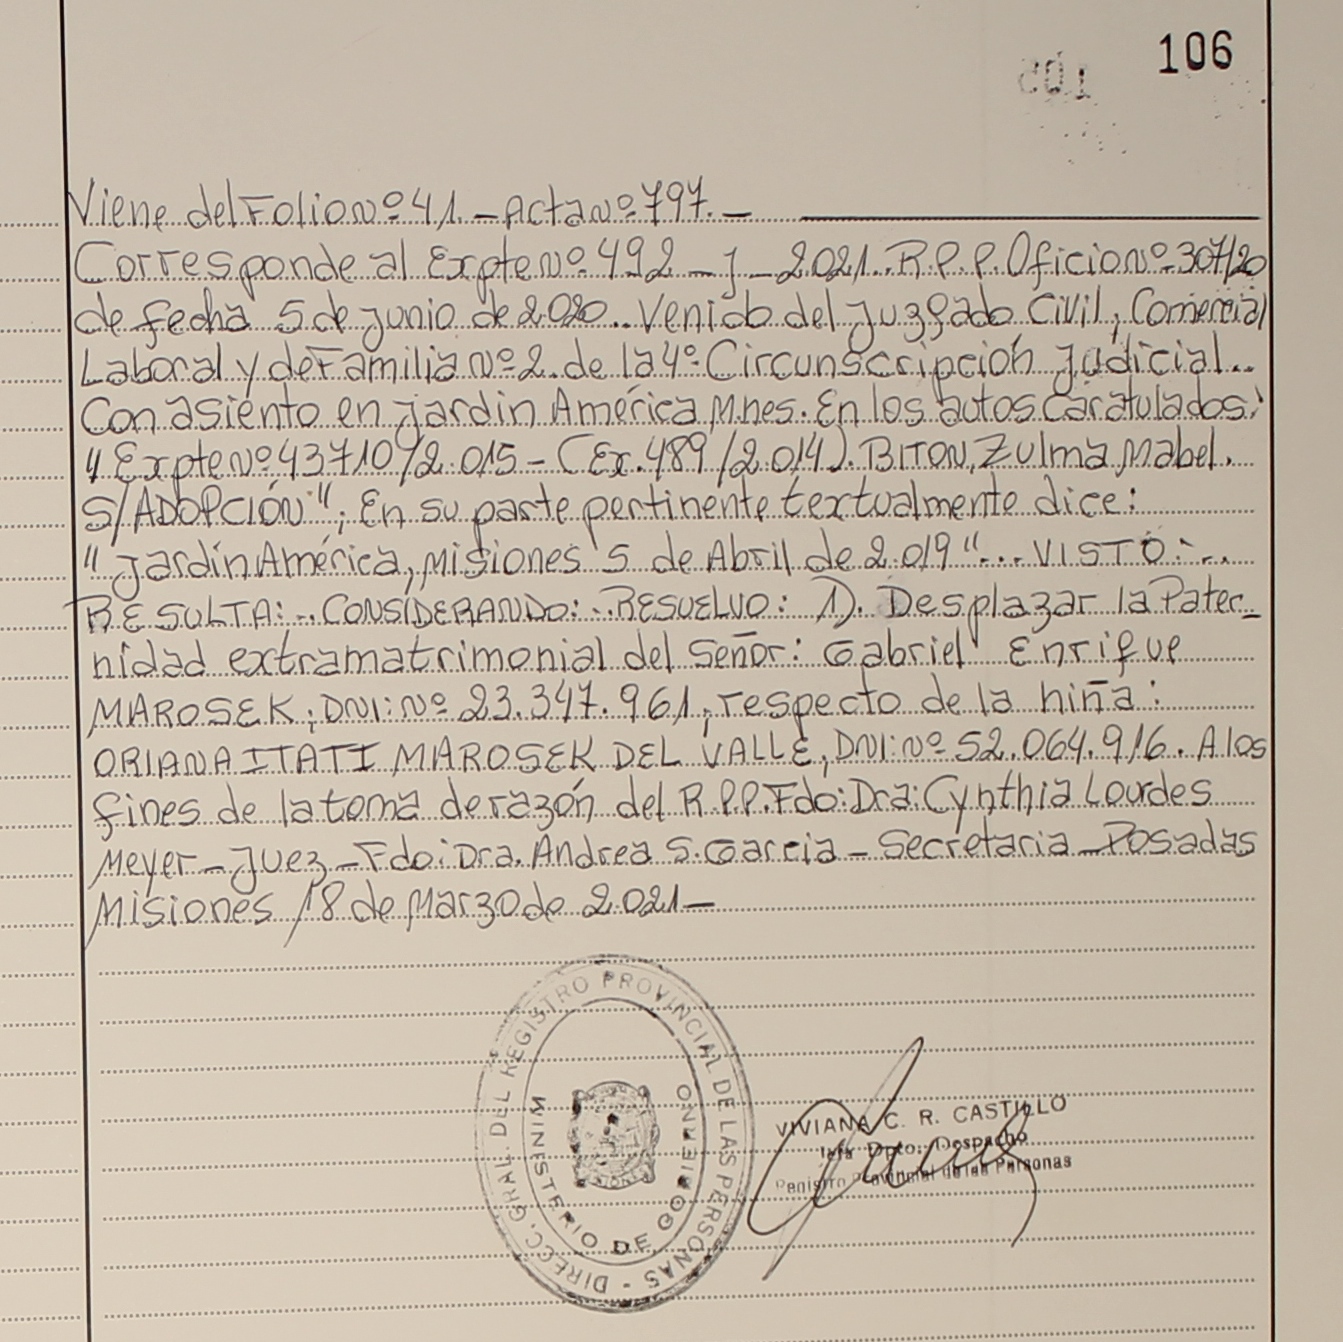 106
Viene del Folio Nº 41. - Acta Nº 797. -
Corresponde al Expte Nº 492 - J - 2021.. R.P.P. Oficio Nº 307/20
de fecha 5 de Junio de 2020.. Venido del Juzgado Civil, Comercial
Laboral y de Familia Nº 2. de la 4º Circunscripción Judicial..
Con asiento en Jardín América Mnes. En los autos Caratulados:
"Expte Nº 43710/2.015 - (Ex. 489/2.014). BITON, Zulma Mabel.
S/ADOPCIÓN"; En su parte pertinente textualmente dice:
"Jardín América, Misiones 5 de Abril de 2.019"... VISTO:..
RESULTA:.. CONSIDERANDO:.. RESUELVO: 1). Desplazar la Pater_
nidad extramatrimonial del Señor: Gabriel Enrique
MAROSEK; DNI: Nº 23.347.961, respecto de la niña:
ORIANA ITATI MAROSEK DEL VALLE, DNI: Nº 52.064.916. A los
fines de la toma de razón del R.P.P. Fdo: Dra: Cynthia Lourdes
Meyer - Juez - Fdo: Dra. Andrea S. García - Secretaria - Posadas
Misiones 18 de Marzo de 2.021 -
DIRECC. GRAL. DEL REGISTRO PROVINCIAL DE LAS PERSONAS -
MINISTERIO DE GOBIERNO
VIVIANA C. R. CASTILLO
Jefa Dpto. Despacho
Registro Provincial de las Personas